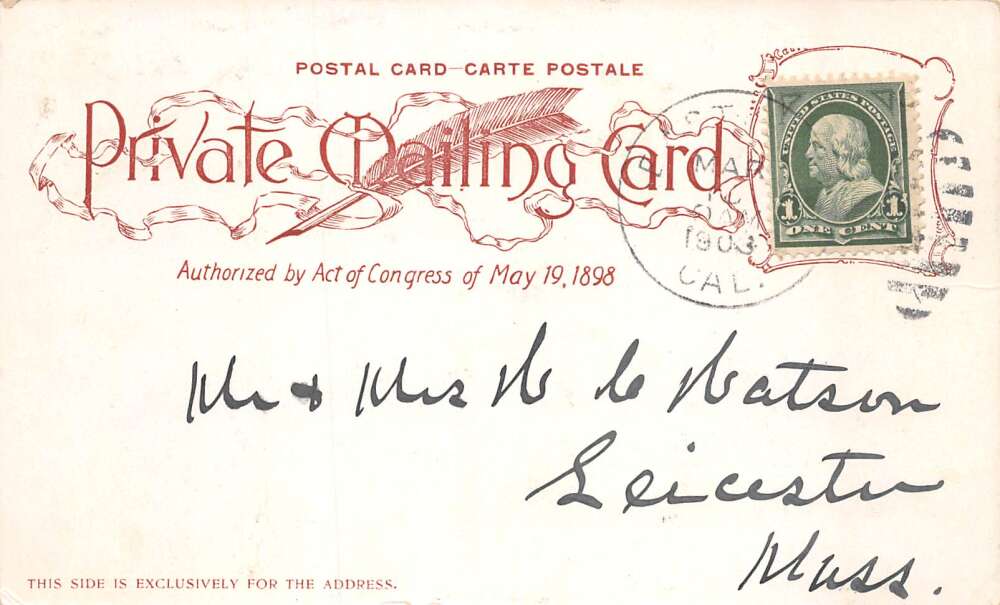 POSTAL CARD—CARTE POSTALE
Private Mailing Card
Authorized by Act of Congress of May 19, 1898
UNITED STATES POSTAGE
1 1
ONE CENT
MAR
1903
CAL.
Mr & Mrs W C Watson
Leicester
Mass.
THIS SIDE IS EXCLUSIVELY FOR THE ADDRESS.